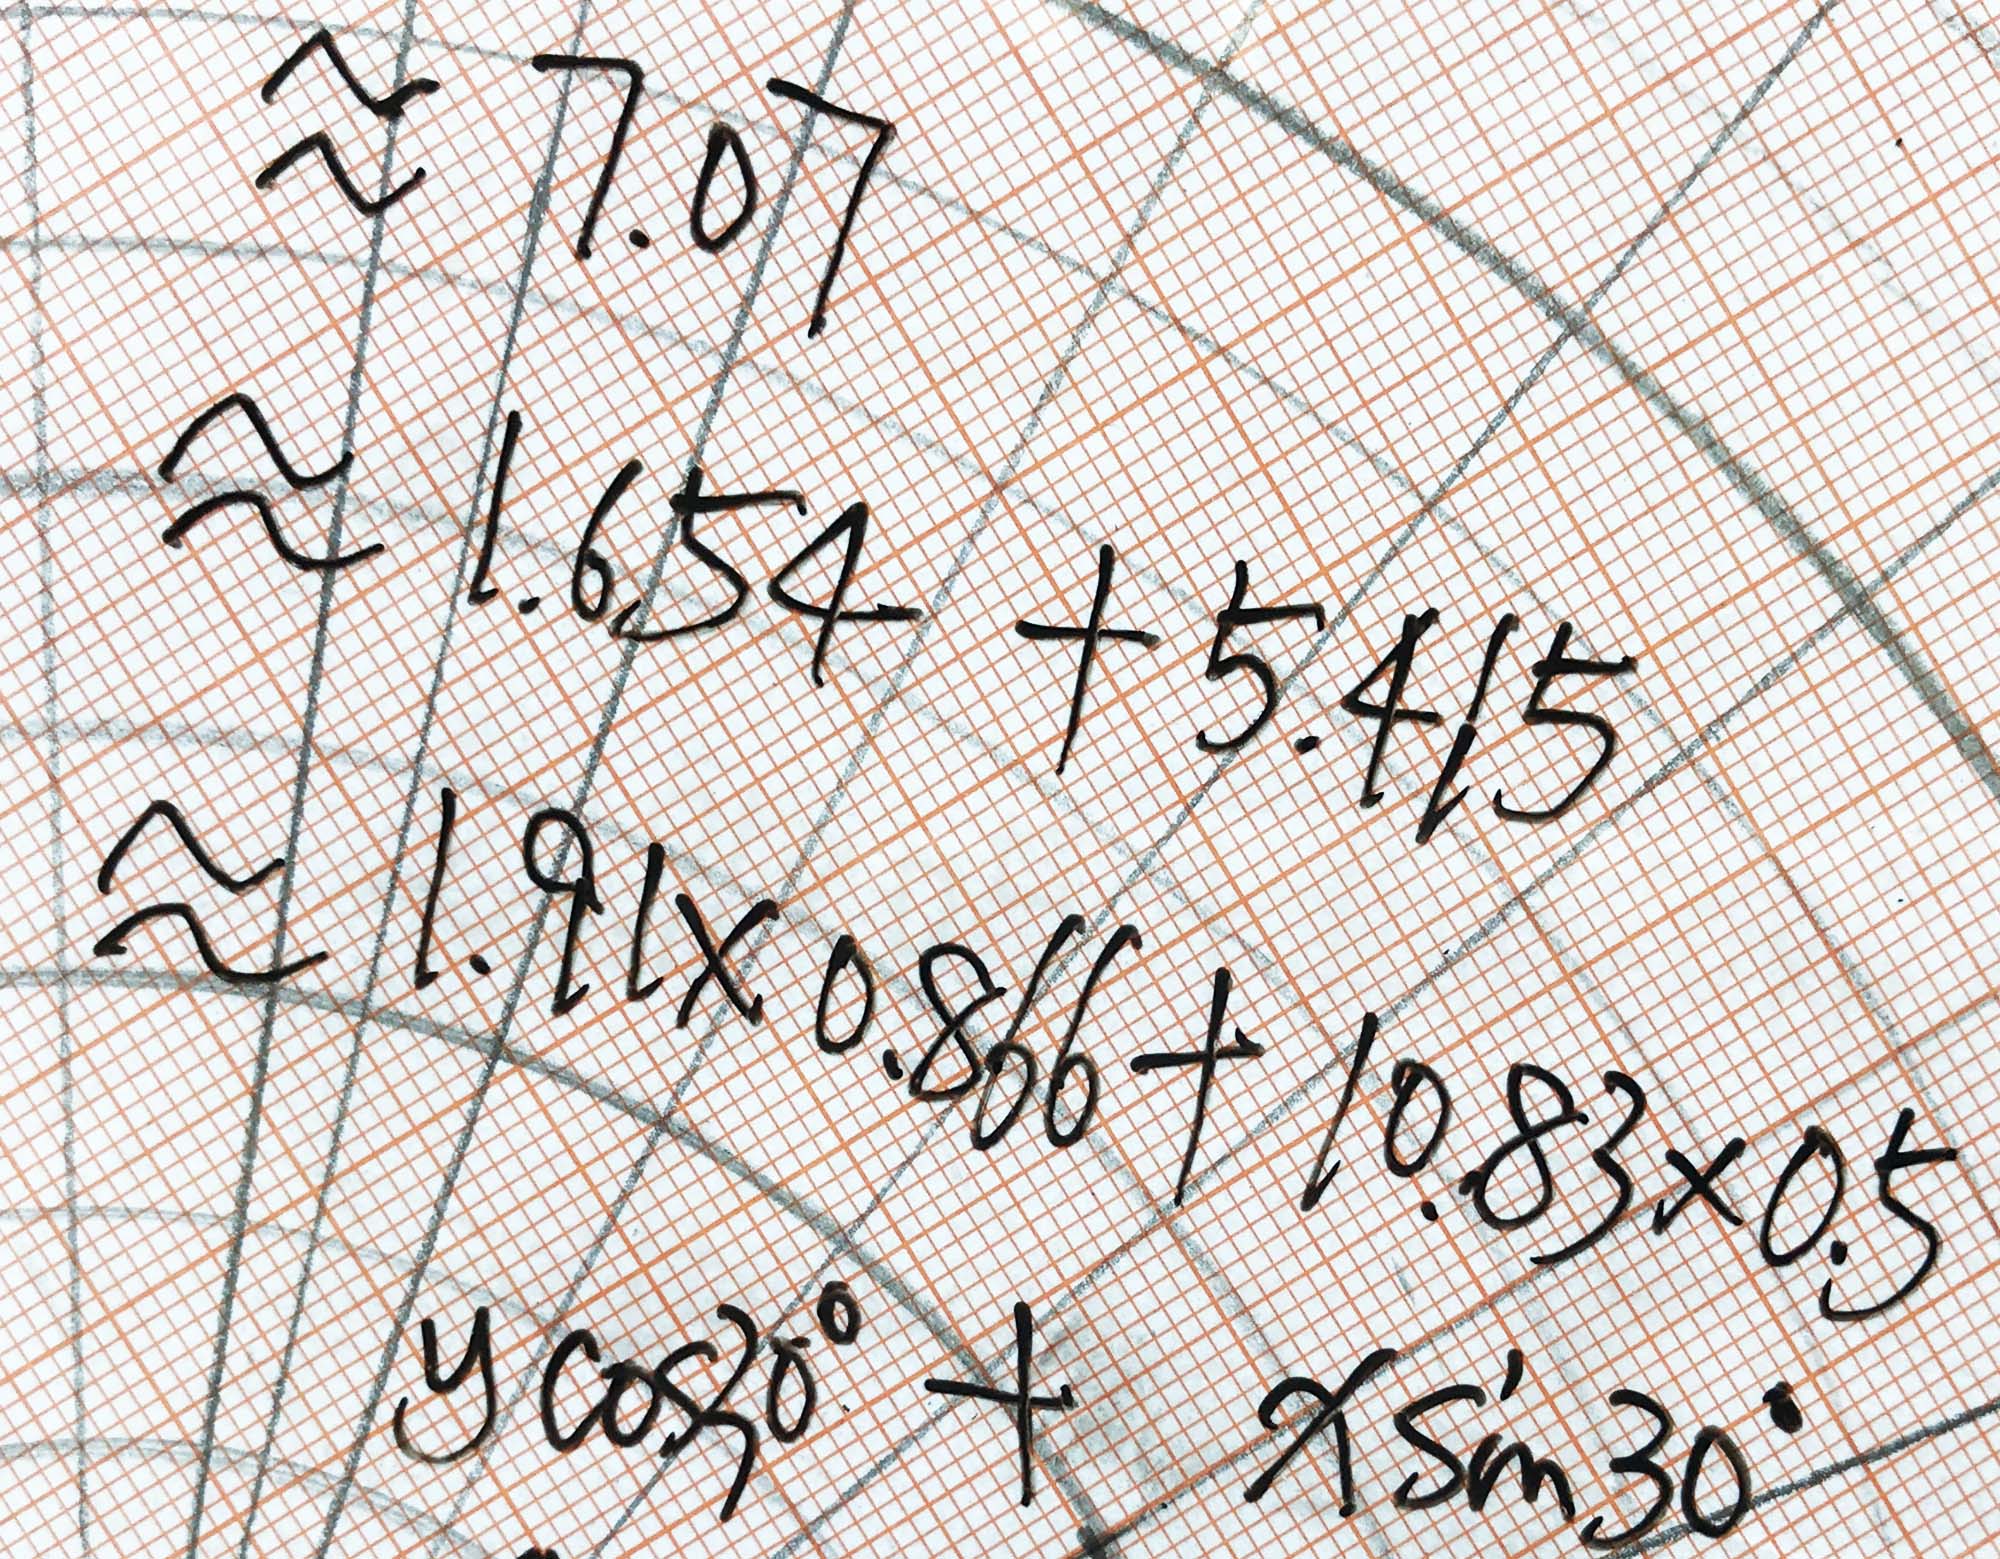 ≈ 7.07
≈ 1.654 + 5.415
≈ 1.91× 0.866 + 10.83×0.5
y cos30° + x sin30°